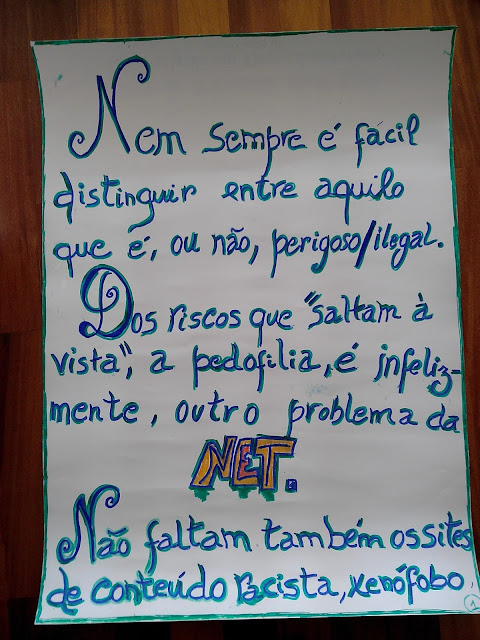 Nem sempre é fácil
distinguir entre aquilo
que é, ou não, perigoso/ilegal.
Dos riscos que "saltam à
vista", a pedofilia, é infeliz-
mente, outro problema da
NET.
Não faltam também os sites
de conteúdo racista, xenófobo
1